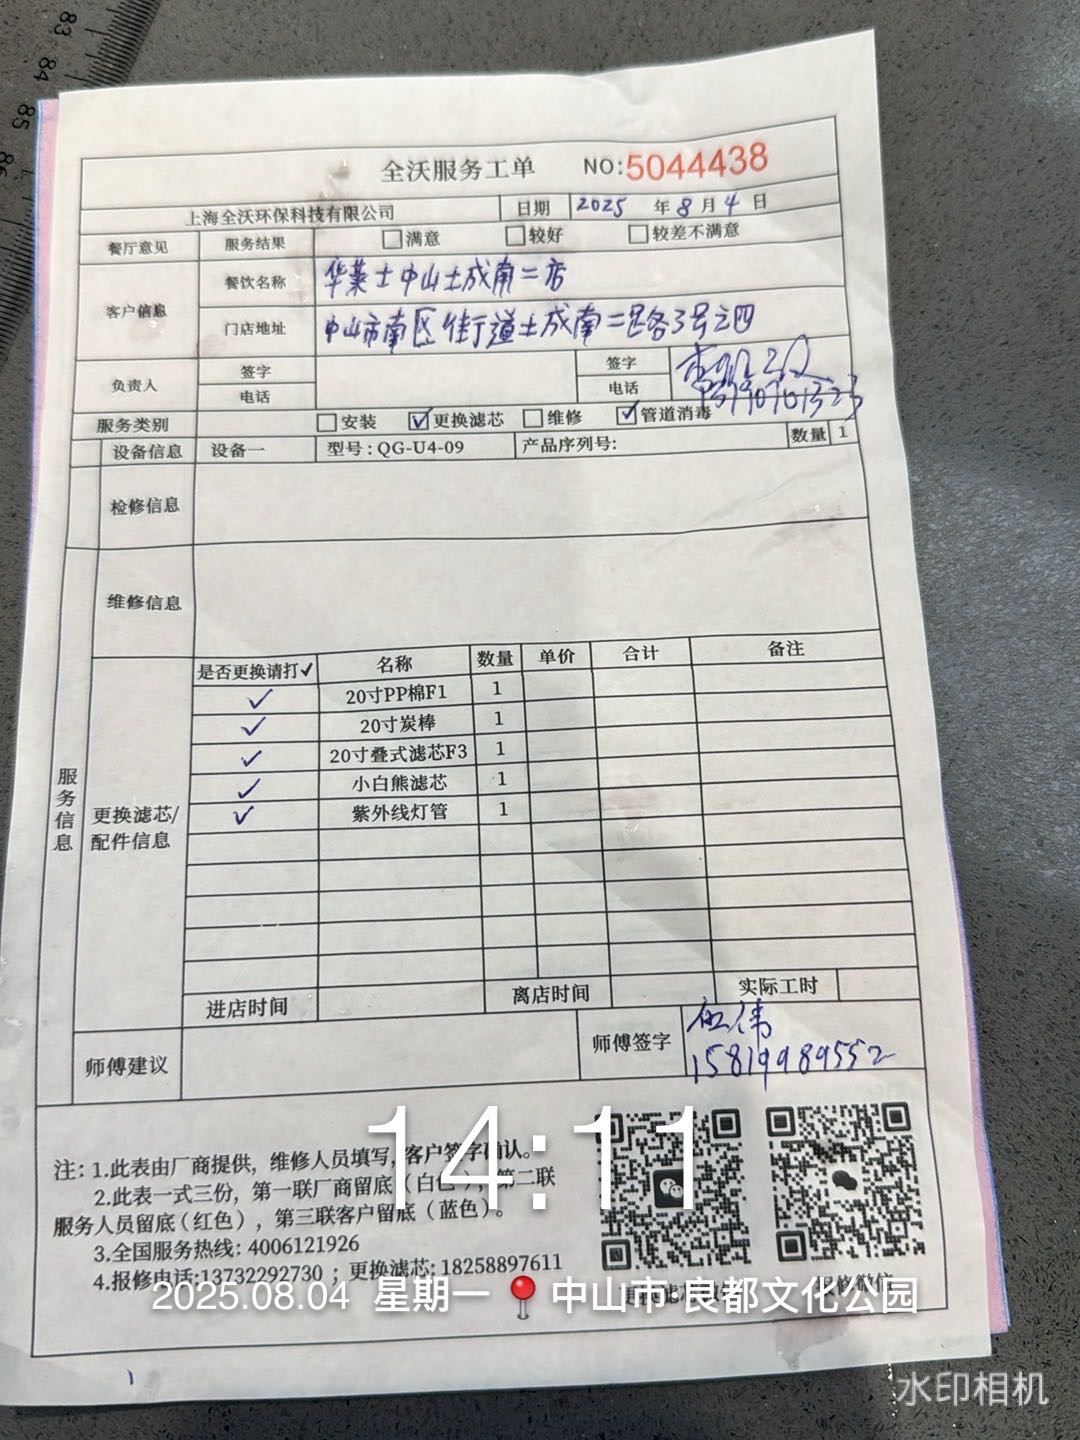 83
84
85
86
全沃服务工单 NO:5044438
上海全沃环保科技有限公司 日期 2025 年 8 月 4 日
餐厅意见 服务结果 □满意 □较好 □较差不满意
客户信息 餐饮名称 华莱士中山土成南二店
门店地址 中山市南区街道土成南二路3号之四
负责人 签字 签字
电话 电话
服务类别 □安装 ☑更换滤芯 □维修 ☑管道消毒
设备信息 设备一 型号:QG-U4-09 产品序列号: 数量 1
检修信息
维修信息
服务信息
更换滤芯/配件信息
是否更换请打✓ 名称 数量 单价 合计 备注
✓ 20寸PP棉F1 1
✓ 20寸炭棒 1
✓ 20寸叠式滤芯F3 1
✓ 小白熊滤芯 1
✓ 紫外线灯管 1
进店时间 离店时间 实际工时
师傅建议 师傅签字 伟
15819989552
注: 1.此表由厂商提供, 维修人员填写, 客户签字确认。
2.此表一式三份, 第一联厂商留底(白色), 第二联
服务人员留底(红色), 第三联客户留底(蓝色)。
3.全国服务热线: 4006121926
4.报修电话:13732292730 ; 更换滤芯: 18258897611
报修微信
14:11
2025.08.04 星期一 中山市·良都文化公园
水印相机